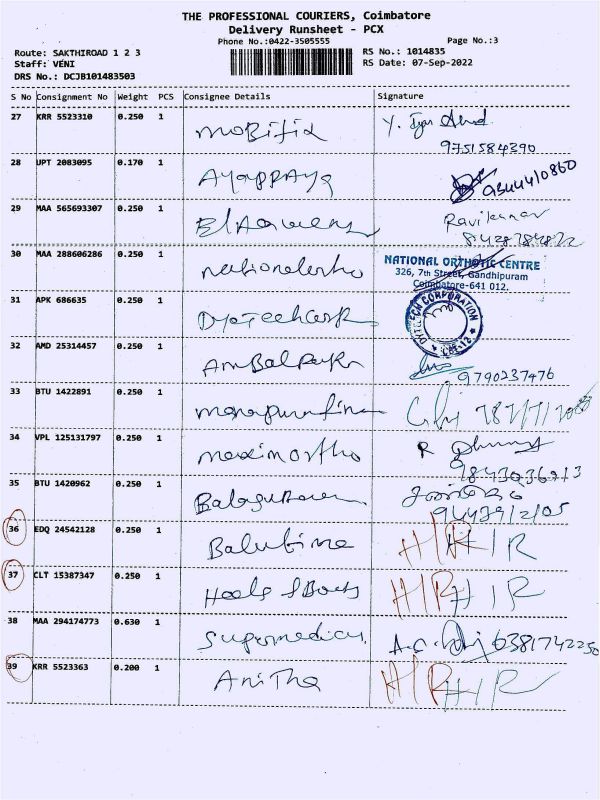 THE PROFESSIONAL COURIERS, Coimbatore
Delivery Runsheet - PCX
Phone No.:0422-3505555
Page No.:3
Route: SAKTHIROAD 1 2 3
RS No.: 1014835
Staff: VENI
RS Date: 07-Sep-2022
DRS No.: DCJB101483503
S No Consignment No Weight PCS Consignee Details Signature
27 KRR 5523310 0.250 1 Mobifix
9751584390
28 UPT 2083095 0.170 1
9344410860
29 MAA 565693307 0.250 1 Ravikumar
30 MAA 288606286 0.250 1 nationalortho
NATIONAL ORTHOTIC CENTRE
326, 7th Street, Gandhipuram
Coimbatore-641 012.
31 APK 686635 0.250 1 DyeTechCorp
DYETECH CORPORATION
CBE-12
32 AMD 25314457 0.250 1
9790237476
33 BTU 1422891 0.250 1
34 VPL 125131797 0.250 1 maximortho
35 BTU 1420962 0.250 1
36 EDQ 24542128 0.250 1 H/R H/R
37 CLT 15387347 0.250 1 H/R H/R
38 MAA 294174773 0.630 1 6381742250
39 KRR 5523363 0.200 1 Anitha H/R H/R